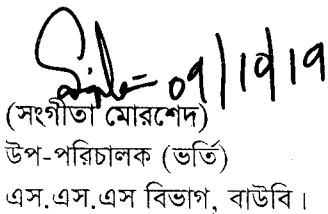 09/10/19
(সংগীতা মোরশেদ)
উপ-পরিচালক (ভর্তি)
এস.এস.এস বিভাগ, বাউবি।